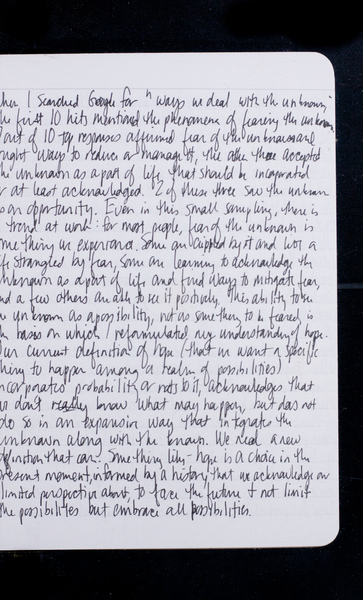 when I searched Google for "ways we deal with the unknown,"
the first 10 hits mentioned the phenomena of fearing the unknown.
out of 10 top responses affirmed fear of the unknown and
ought ways to reduce or manage it, the other three accepted
the unknown as a part of life that should be incorporated
or at least acknowledged. 2 of these three saw the unknown
as an opportunity. Even in this small sampling, there is
a trend at work: for most people, fear of the unknown is
something we experience. Some are crippled by it and live a
life strangled by fear, some are learning to acknowledge the
unknown as a part of life and find ways to mitigate fear,
and a few others are able to see it positively. This ability to see
the unknown as a possibility, not as something to be feared, is
the basis on which I reformulated my understanding of hope.
Our current definition of hope (that we want a specific
thing to happen among a realm of possibilities)
incorporates probability or rests on it, acknowledges that
we don't really know what may happen, but does not
do so in an expansive way that integrates the
unknown along with the known. We need a new
definition that can. Something like - hope is a choice in the
present moment, informed by a history that we acknowledge our
limited perspective about, to face the future & not limit
the possibilities but embrace all possibilities.